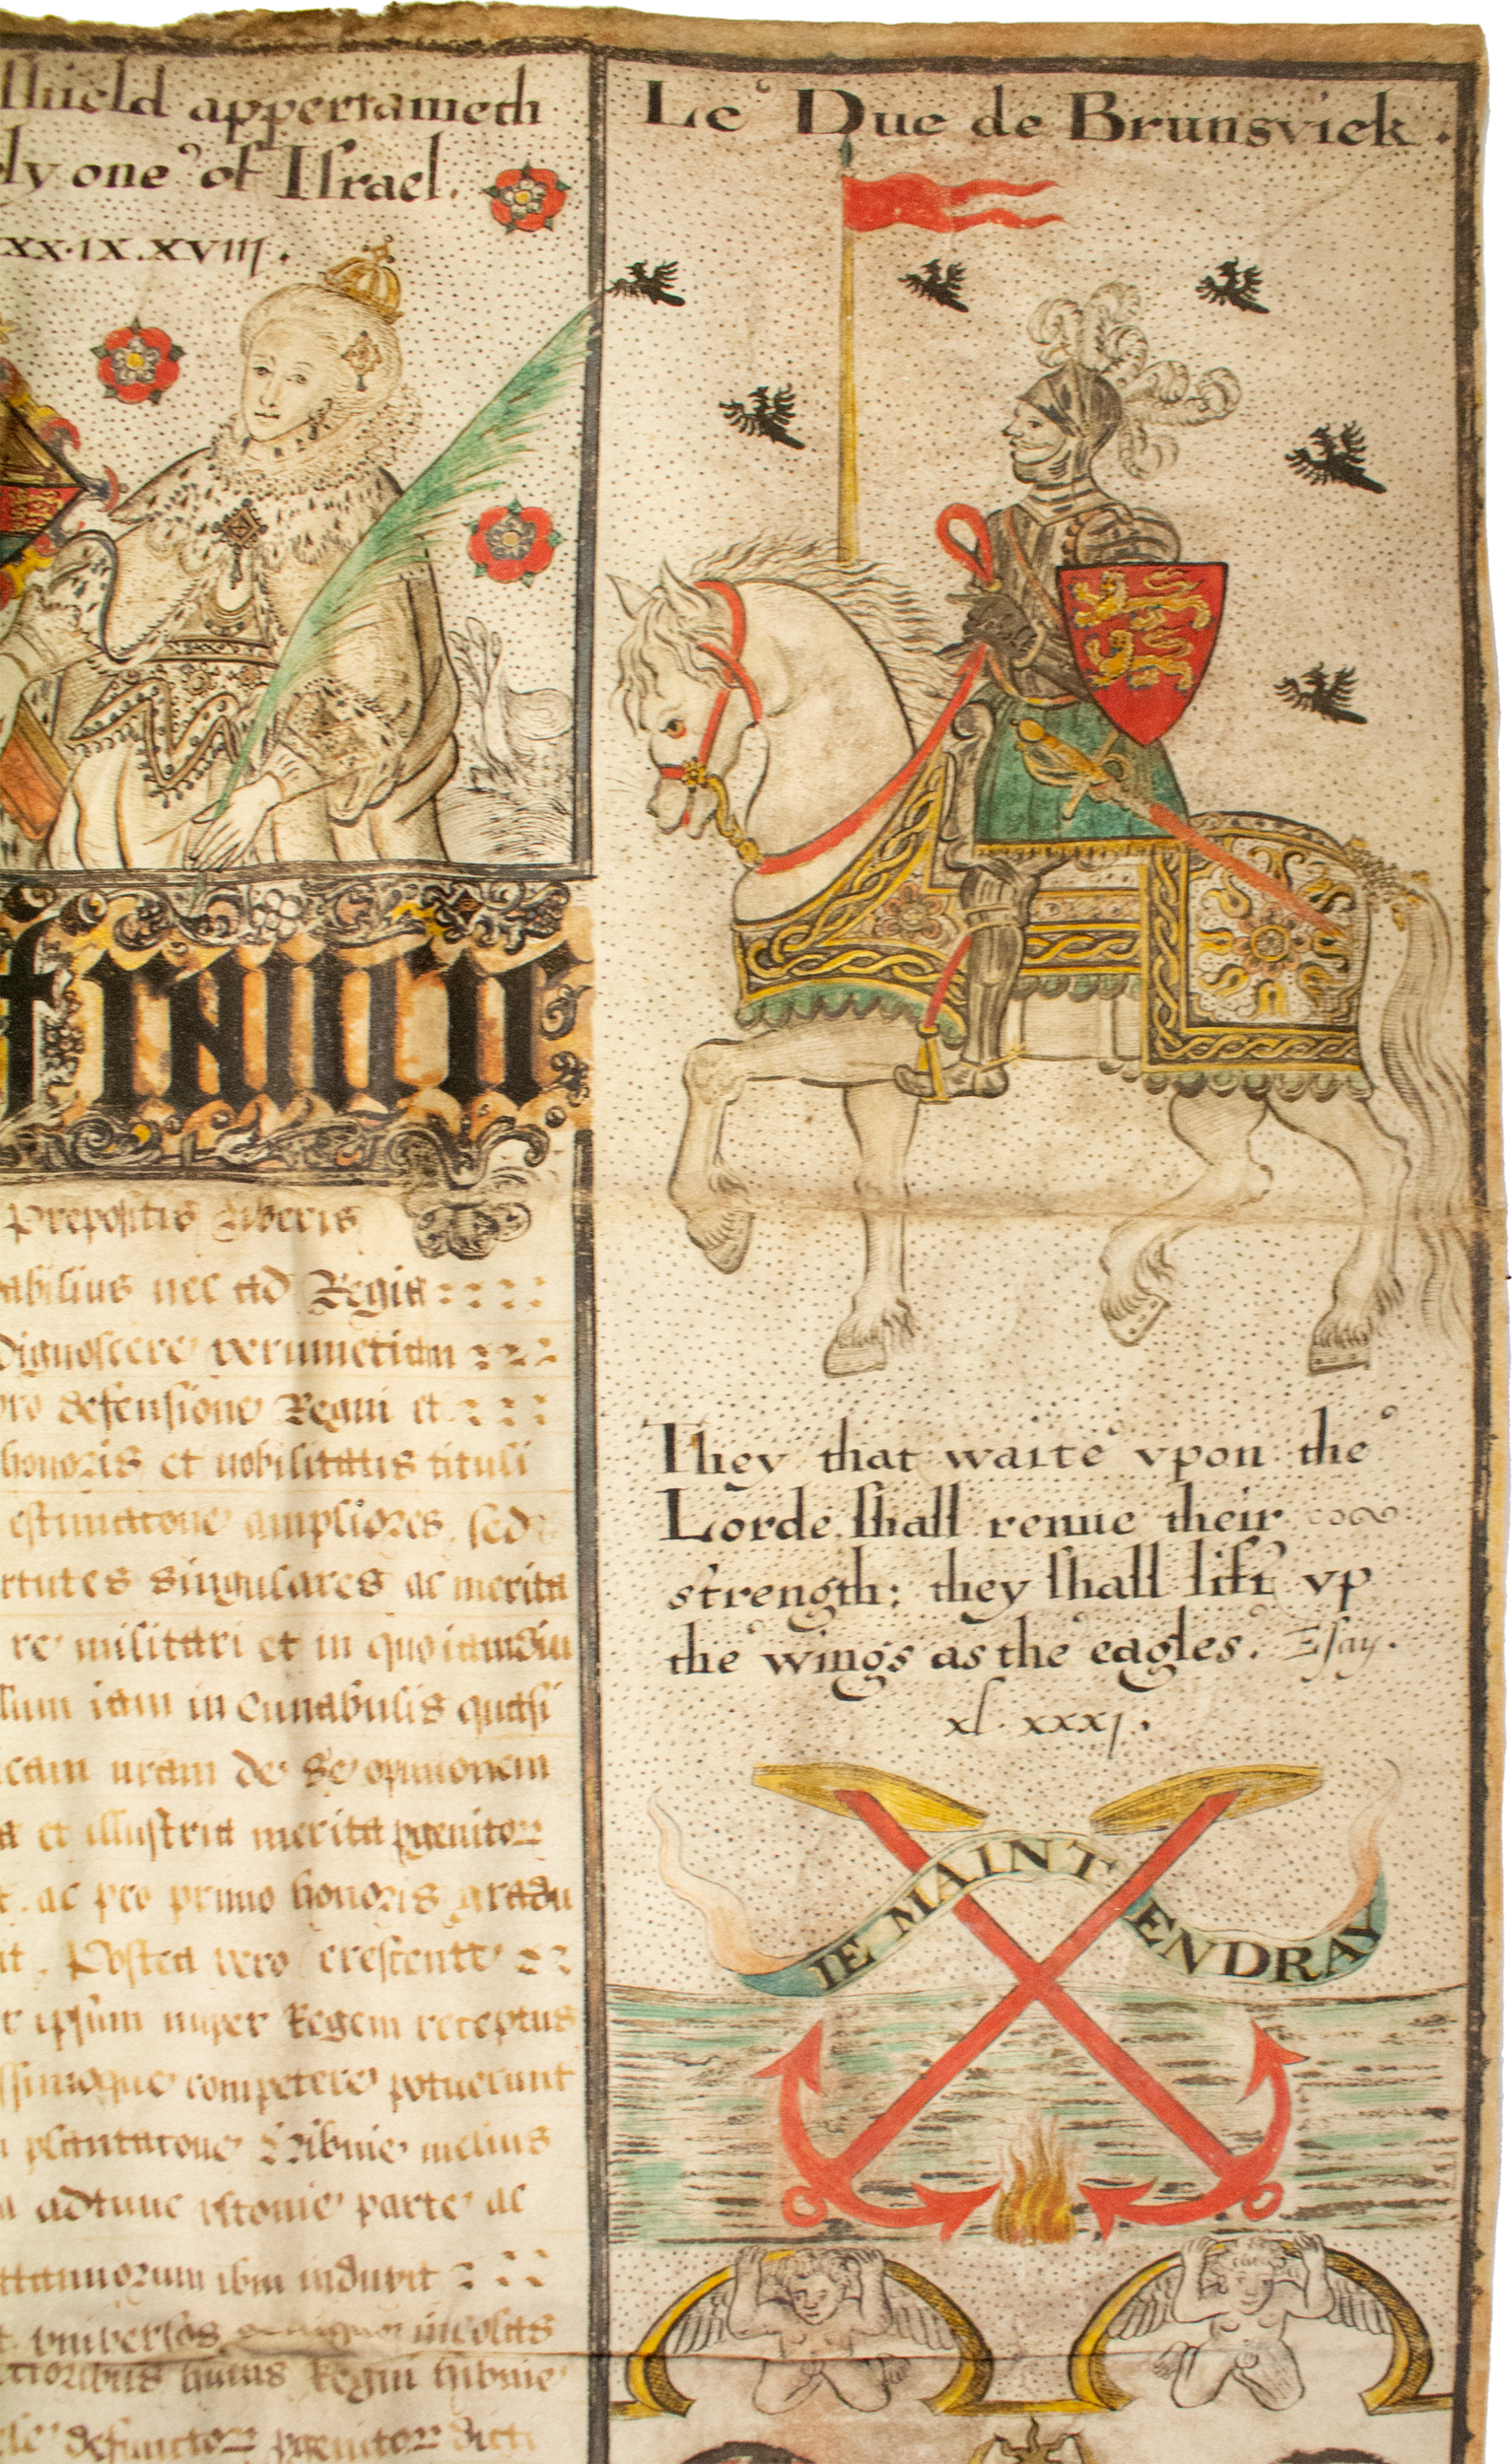 shield appertaineth
ly one of Israel.
xx.ix.xviij.
Prepositis Liberis
abilius nec ad Regia
Dignoscere verumetiam
pro defensione Regni et
honoris et nobilitatis tituli
estimacone ampliores sed
rtutes singulares ac merita
re militari et in quo iamdiu
lum iam in Cunabulis quasi
cam uram de se opinionem
a et illustria merita pgenitor
t. ac pro primo honoris gradu
it, Postea vero crescente
r ipsum nuper Regem receptus
ssimoque competere potuerunt
plantacone Hibnie melius
adtunc istonie parte ac
ttannorum ibm induxit
universos incolas
ctioribus huius Regni hibnie
defunctor pgenitor dicti
Le Duc de Brunsvick.
They that waite vpon the
Lorde shall renue their
strength: they shall lift vp
the wings as the eagles. Esay.
xl. xxxj.
IE MAINTENDRAY